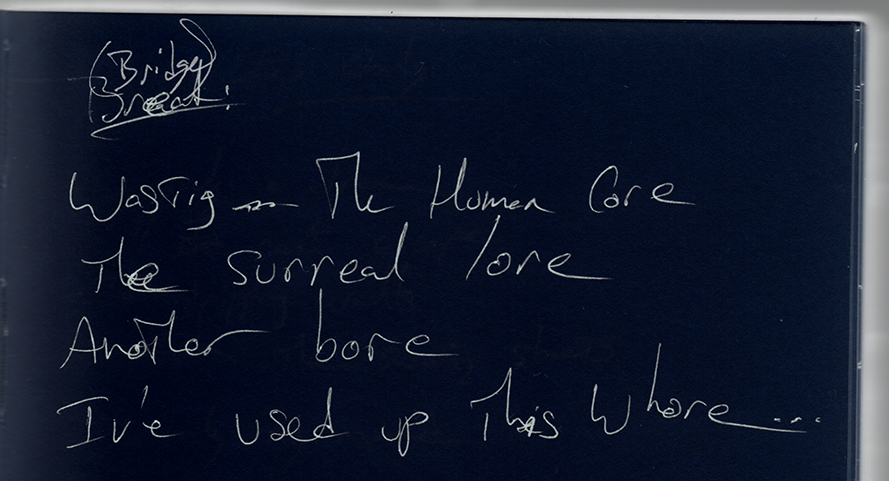 (Bridge)
Break:
Wastig The Human Core
The surreal lore
Another bore
I've used up This Whore...